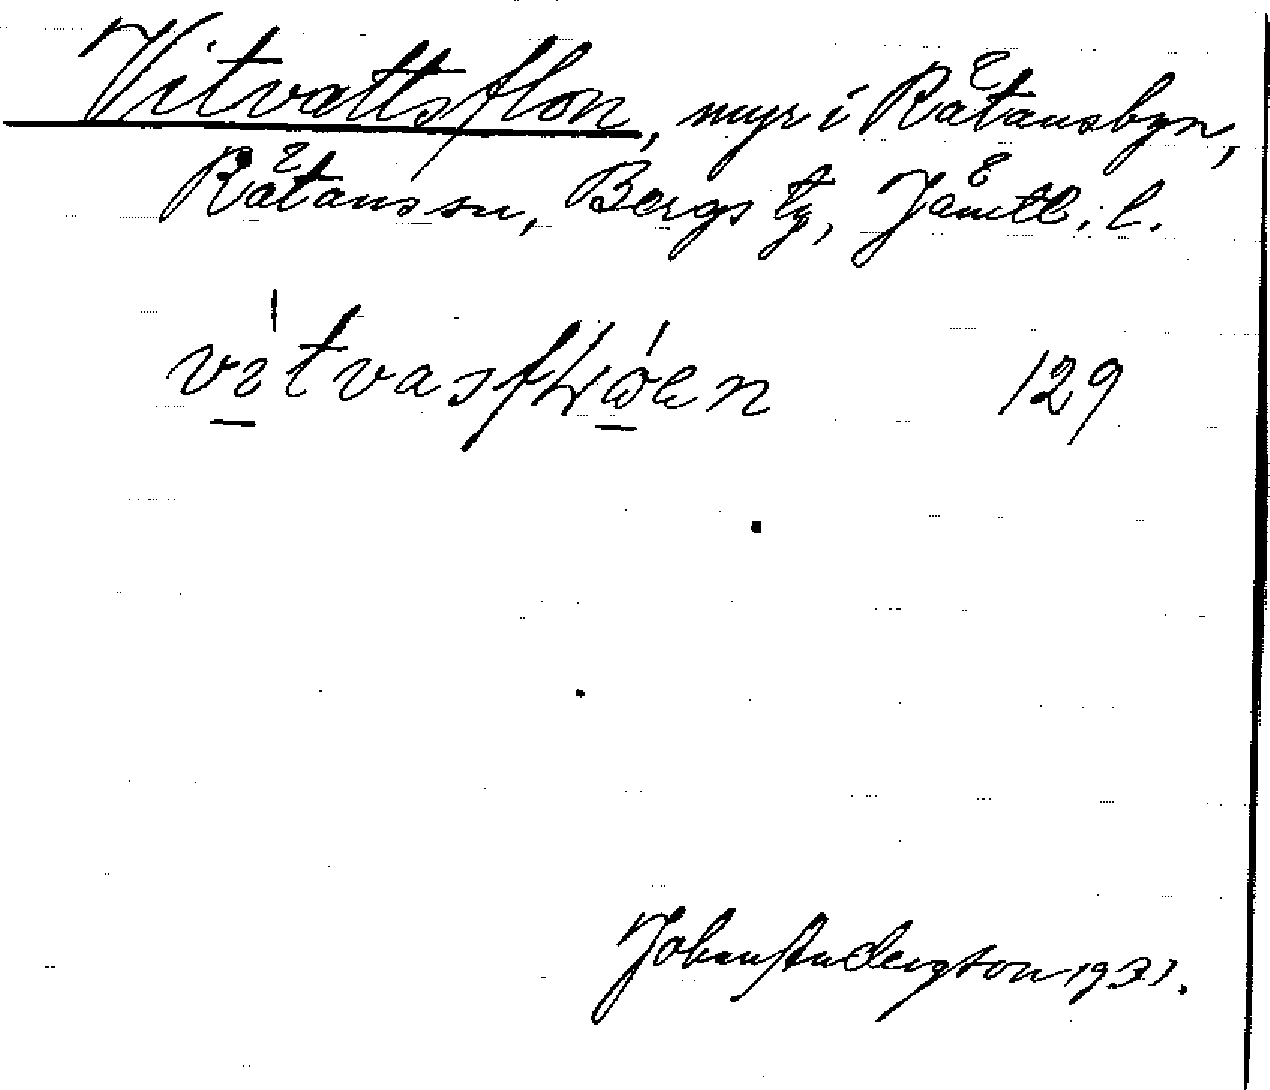 Vitvattsflon, myr i Rätansbyn,
Rätans sn, Bergs tg, Jämtl. l.
129
Johan Anderson 1931.